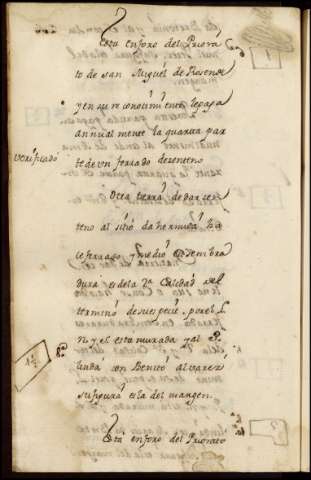 Esta en foro del Priora
to de san Miguel de Rosende
y en su reconocimiento le paga
annualmente la quarta par
te de un ferrado de zenteno
verificado
Otra tierra de dar cen
teno al sitio da hermita ha
ce ferrado y medio en sembra
dura es de la 2a Calidad del
termino de su especie, por el L
n y el esta murada y al P.
linda con Benito alvarez
su figura es la del margen
Esta en foro del Priorato